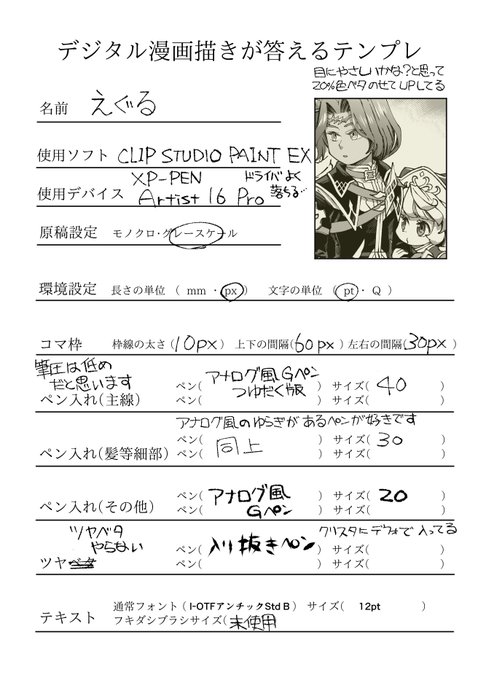 デジタル漫画描きが答えるテンプレ
目にやさしいかな?と思って
20%色ベタのせてUPしてる
名前 えぐる
使用ソフト CLIP STUDIO PAINT EX
使用デバイス XP-PEN Artist 16 Pro
ドライバよく
落ちる…
原稿設定 モノクロ・グレースケール
環境設定 長さの単位 ( mm ・ px ) 文字の単位 ( pt ・ Q )
コマ枠 枠線の太さ(10px) 上下の間隔(60px)左右の間隔(30px)
筆圧は低め
だと思います
ペン入れ(主線) ペン( アナログ風Gペン つゆだく版 ) サイズ( 40 )
アナログ風のゆらぎがあるペンが好きです
ペン入れ(髪等細部) ペン( 同上 ) サイズ( 30 )
ペン( ) サイズ( )
ペン入れ(その他) ペン( アナログ風 Gペン ) サイズ( 20 )
ペン( ) サイズ( )
ツヤベタ
やらない
クリスタにデフォで入ってる
ツヤベタ ペン( 入り抜きペン ) サイズ( )
ペン( ) サイズ( )
テキスト 通常フォント ( I-OTFアンチックStd B ) サイズ( 12pt )
フキダシブラシサイズ( 未使用 )